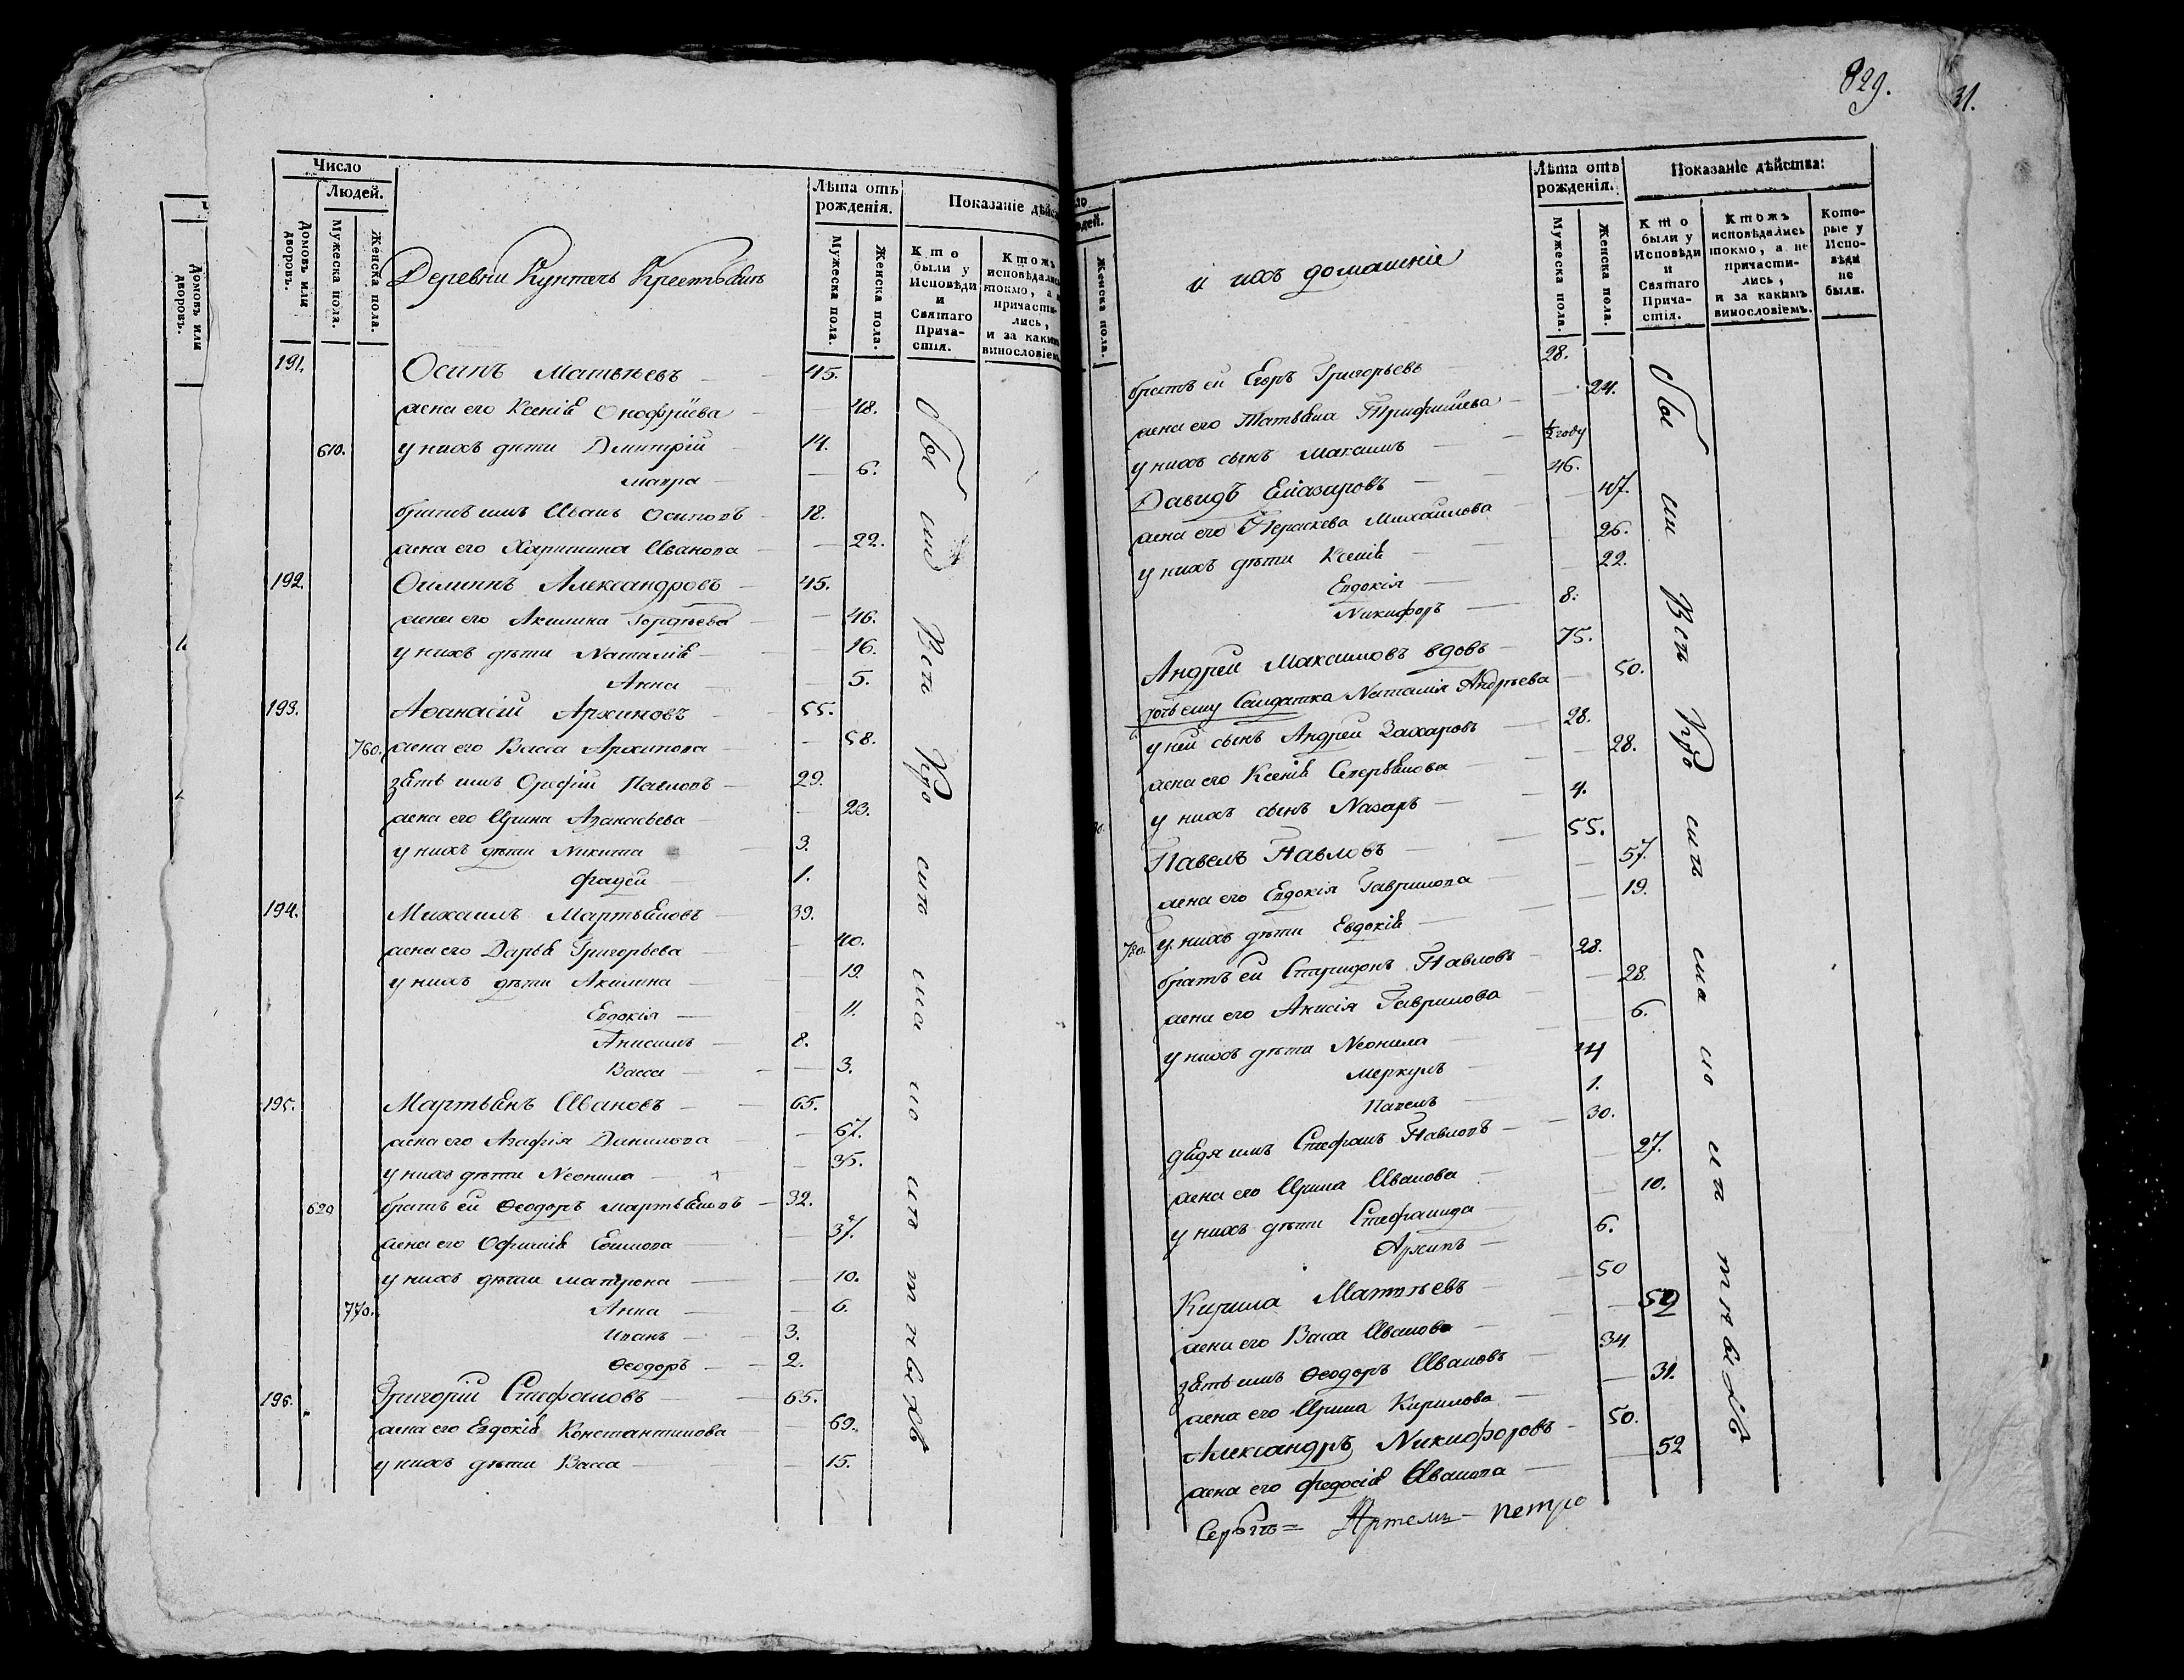 829.
31.
Число
Людей.
Домовъ или дворовъ.
Мужеска пола.
Женска пола.
Лѣта отъ рожденія.
Мужеска пола.
Женска пола.
Показаніе дѣйс
Кто были у Исповѣди и Святаго Причастія.
Ктожъ исповѣдались токмо, а причасти-лись, и за каким винословіем
Домовъ или дворовъ.
Деревни Крестьянъ
191. Осипъ Матвѣевъ 45.
жена его Ксенія Онофріева 48.
610. у нихъ дѣти Дмитрій 14.
Мавра 6.
братъ имъ Иванъ Осиповъ 18.
жена его Харитина Иванова 22.
192. Александровъ 45.
жена его Акилина Гордѣева 46.
у нихъ дѣти Наталія 16.
Анна 5.
193. Аѳанасій Архиповъ 55.
760. жена его Васса Архипова 58.
зять имъ Орефій Павловъ 29.
жена его Ирина Аѳанасьева 23.
у нихъ дѣти Никита 3.
Фадей 1.
194. Михаилъ Мартьяновъ 39.
жена его Дарья Григорьева 40.
у нихъ дѣти Акилина 19.
Евдокія 11.
Анисимъ 8.
Васса 3.
195. Мартьянъ Ивановъ 65.
жена его Агафія Данилова 67.
у нихъ дѣти Неонила 35.
620 братъ ей Ѳеодоръ Мартьяновъ 32.
жена его Офимія Ефимова 37.
у нихъ дѣти Матрона 10.
770. Анна 6.
Иванъ 3.
Ѳеодоръ 2.
196. Григорій Стефановъ 65.
жена его Евдокія Константинова 69.
у нихъ дѣти Васса 15.
одей.
Женска пола.
и ихъ домашніе
Лѣта отъ рожденія.
Мужеска пола.
Женска пола.
Показаніе дѣйства:
Кто были у Исповѣди и Святаго Прича-стія.
Ктожъ исповѣдались токмо, а не причасти-лись, и за какимъ винословіемъ.
Кото-рые у Испо-вѣди не были.
братъ ей Егоръ Григорьевъ 28.
жена его Татьяна Трифонова 24.
у нихъ сынъ Максимъ ½ году
Давидъ Елазаровъ 46.
жена его Параскева Михаилова 47.
у нихъ дѣти Ксенія 26.
Евдокія 22.
Никифоръ 8.
Андрей Максимовъ вдовъ 75.
дочь ему Салдатка Наталія Андрѣева 50.
у ней сынъ Андрей Захаровъ 28.
жена его Ксенія Северьянова 28.
у нихъ сынъ Назаръ 4.
Павелъ Павловъ 55.
жена его Евдокія Гаврилова 57.
780. у нихъ дѣти Евдокія 19.
братъ ей Спиридонъ Павловъ 28.
жена его Анисія Гаврилова 28.
у нихъ дѣти Неонила 6.
Меркулъ 4
Павелъ 1.
дядя имъ Стефанъ Павловъ 30.
жена его Ирина Иванова 27.
у нихъ дѣти Стефанида 10.
Архипъ 6.
Кирила Матвѣевъ 50
жена его Васса Иванова 52
зять имъ Ѳеодоръ Ивановъ 34
жена его Ирина Кирилова 31.
Александръ Никифоровъ 50.
жена его Федосія Иванова 52
Артемъ Петро